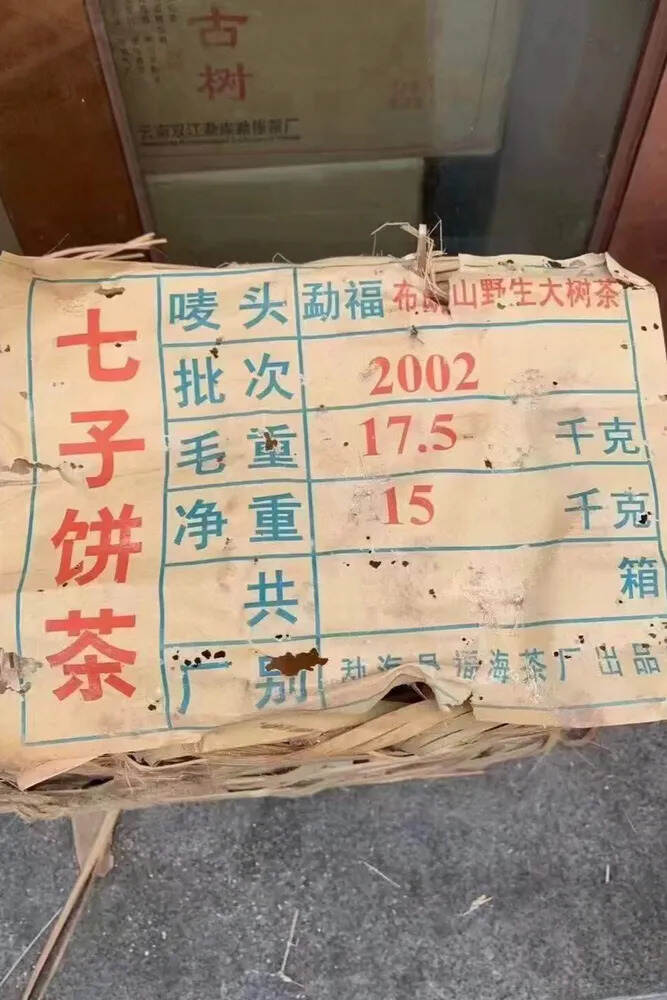 古树
云南双江勐库勐傣茶厂
七子饼茶
唛头 勐福 布朗山野生大树茶
批次 2002
毛重 17.5 千克
净重 15 千克
共 箱
厂别 勐海县福海茶厂出品